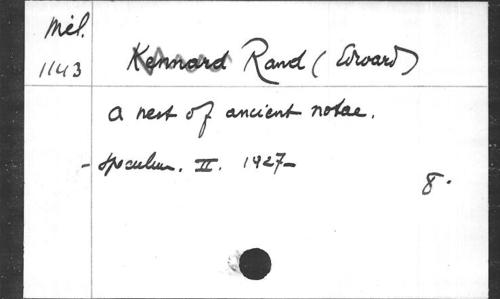 Mél.
1143
Kennard Rand (Edward)
A nest of ancient notae.
- Speculum. II. 1927 -
8°